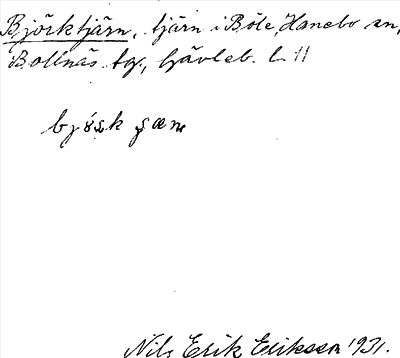 Björktjärn, tjärn i Böle, Hanebo sn,
Bollnäs tg., Gävleb. l.
Nils Erik Eriksson 1931.